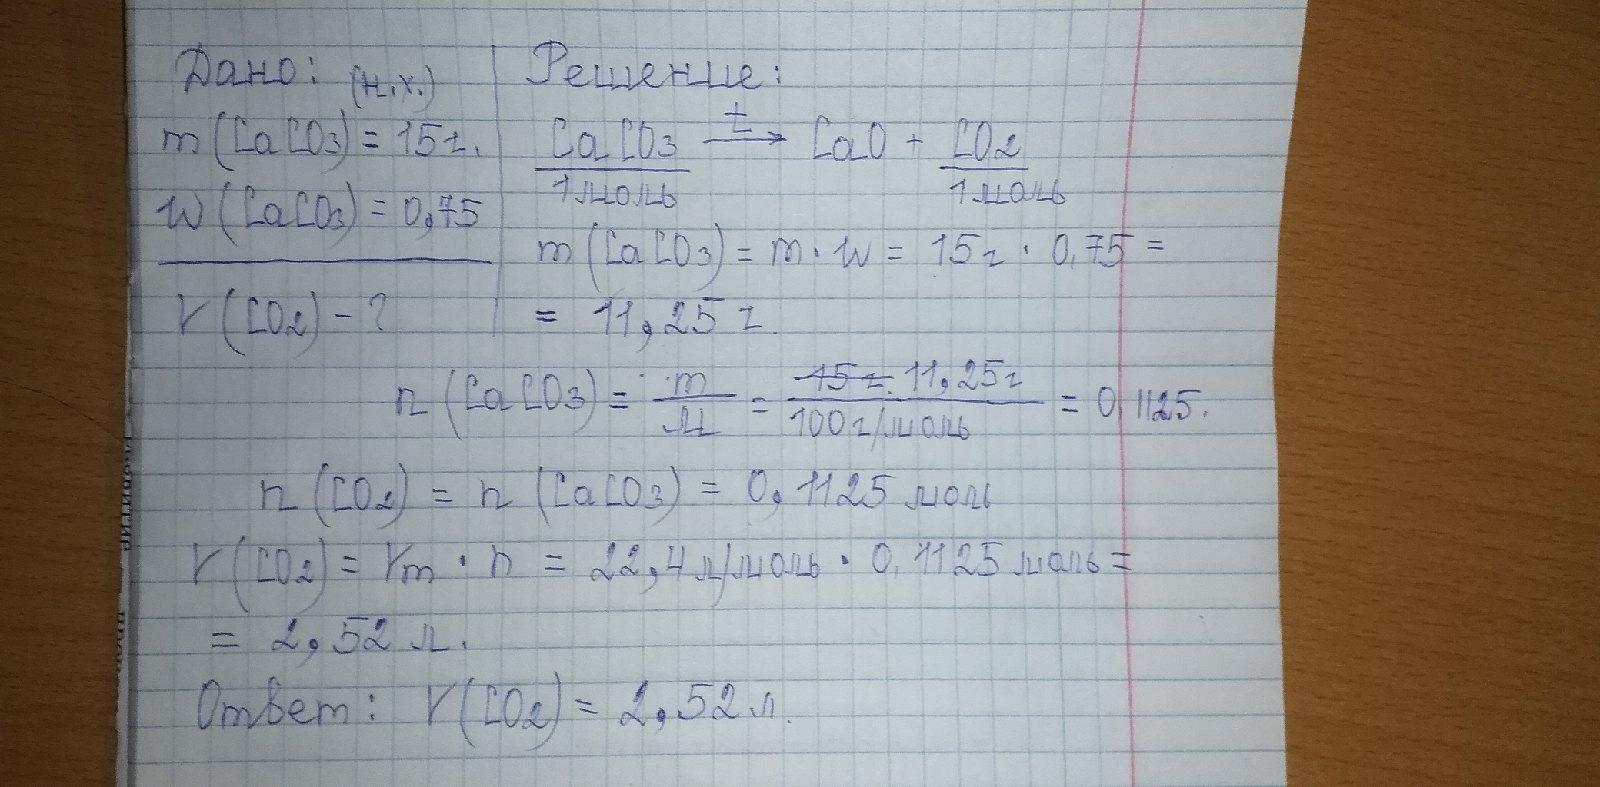 Дано: (н.х.)
m(CaCO3) = 15г.
w(CaCO3) = 0,75
V(CO2) - ?
Решение:
CaCO3 t→ CaO + CO2
1моль 1моль
m(CaCO3) = m · w = 15г · 0,75 =
= 11,25 г.
n(CaCO3) = m/M = 15г. 11,25г/100г/моль = 0,1125.
n(CO2) = n(CaCO3) = 0,1125 моль
V(CO2) = Vm · n = 22,4 л/моль · 0,1125 моль =
= 2,52 л.
Ответ: V(CO2) = 2,52 л.